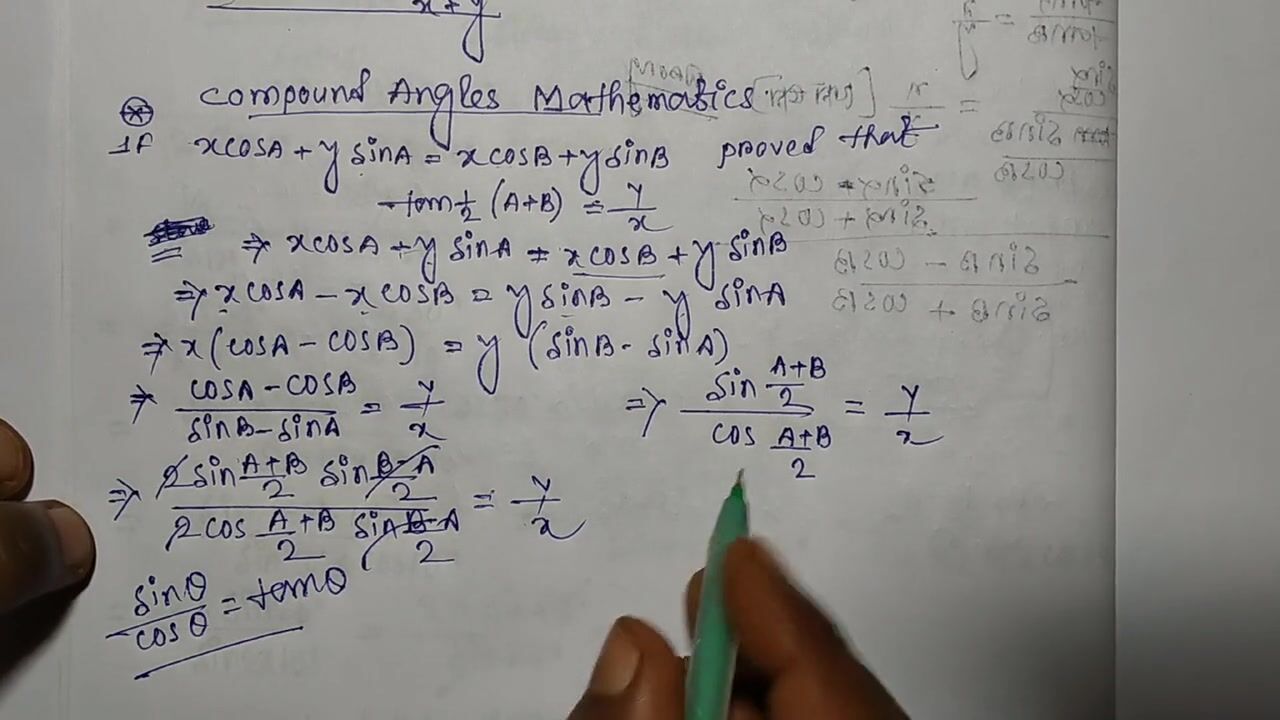 x+y
Compound Angles Mathematics
If xcosA + y sinA = xcosB + y sinB proved that
tan 1/2 (A+B) = y/x
⇒ xcosA + y sinA = xcosB + y sinB
⇒ xcosA - xcosB = y sinB - y sinA
⇒ x(cosA - cosB) = y (sinB - sinA)
⇒ (cosA - cosB)/(sinB - sinA) = y/x
⇒ (2 sin (A+B)/2 sin (B-A)/2)/(2 cos (A+B)/2 sin (B-A)/2) = y/x
sinθ/cosθ = tanθ
⇒ (sin (A+B)/2)/(cos (A+B)/2) = y/x